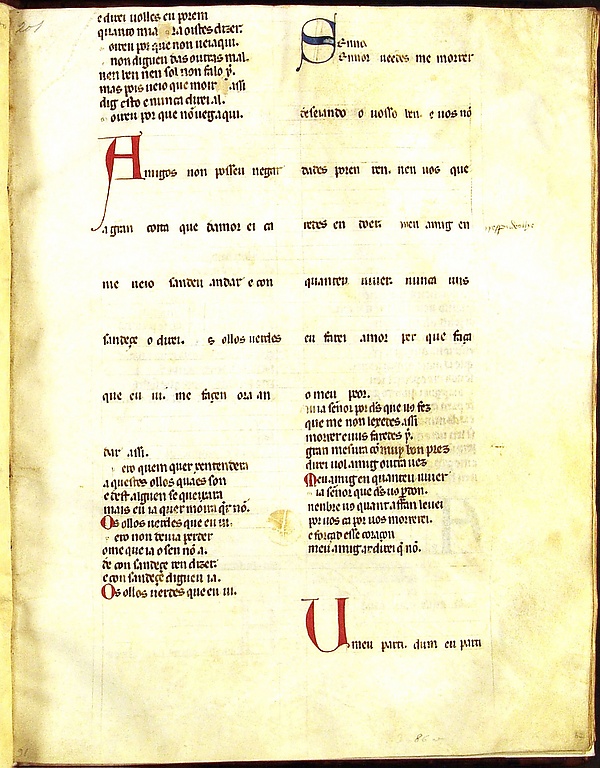 e direi uolles eu porem
quanto mia ra oistes dizer.
oireu por que non ueiaqui.
non diguen das outras mal.
nen ben nen sol non falo y.
mas pois ueio que moir assi
dig esto e nunca direi al.
oireu por que nō uegaqui.
Amigos non posseu negar
a gran coita que damor ei ca
me ueio sandeu andar e con
sandeçe o direi. os ollos uerdes
que eu ui. me façen ora an
dar assi.
ero quem quer xentenderá
aquestes ollos quaes son
e dest alguen se queixara
mais eu ia quer moira q̄r nō.
Os ollos uerdes que eu ui.
ero non deuia perder
ome que ia o sen nō a.
de con sandeçe ren dizer
e con sandeçe diguen ia.
Os ollos uerdes que eu ui.
Senno
Sennor ueedes me morrer
deseiando o uosso ben. e uos nō
dades poren ren. nen uos que
redes en doer. meu amig en
quanteu uiuer. nunca uus
eu farei amor per que faça
o meu peor.
mia señor por d̄s que us fez
que me non leixedes assi
morrer e uus faredes y.
gran mesura cō mui bon prez
direi uol amig outra uez
Meu amig en quanteu uiuer
ia señor que d̄s us perdon.
nenbre uo quant affan leuei
por uos ca por uos morrerei.
e forçad esse coraçon
meu amig ar direi q̄ nō.
U meu parti. dum eu parti